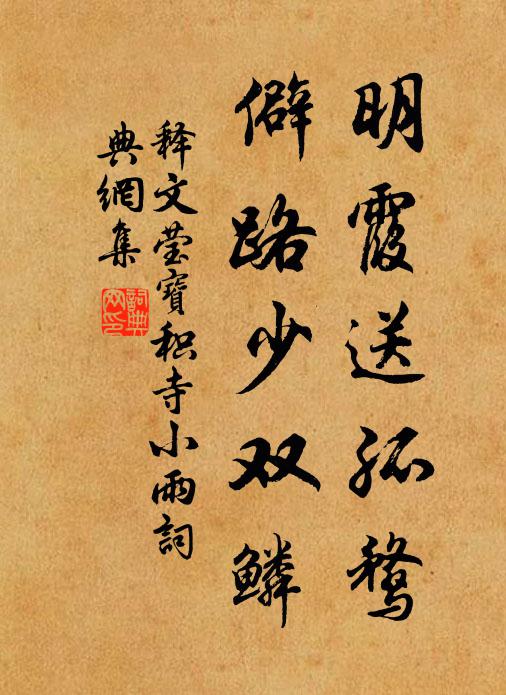 明霞送孤鹜
僻路少双鳞
释文莹寶积寺小雨詞
典網集
詞典網印